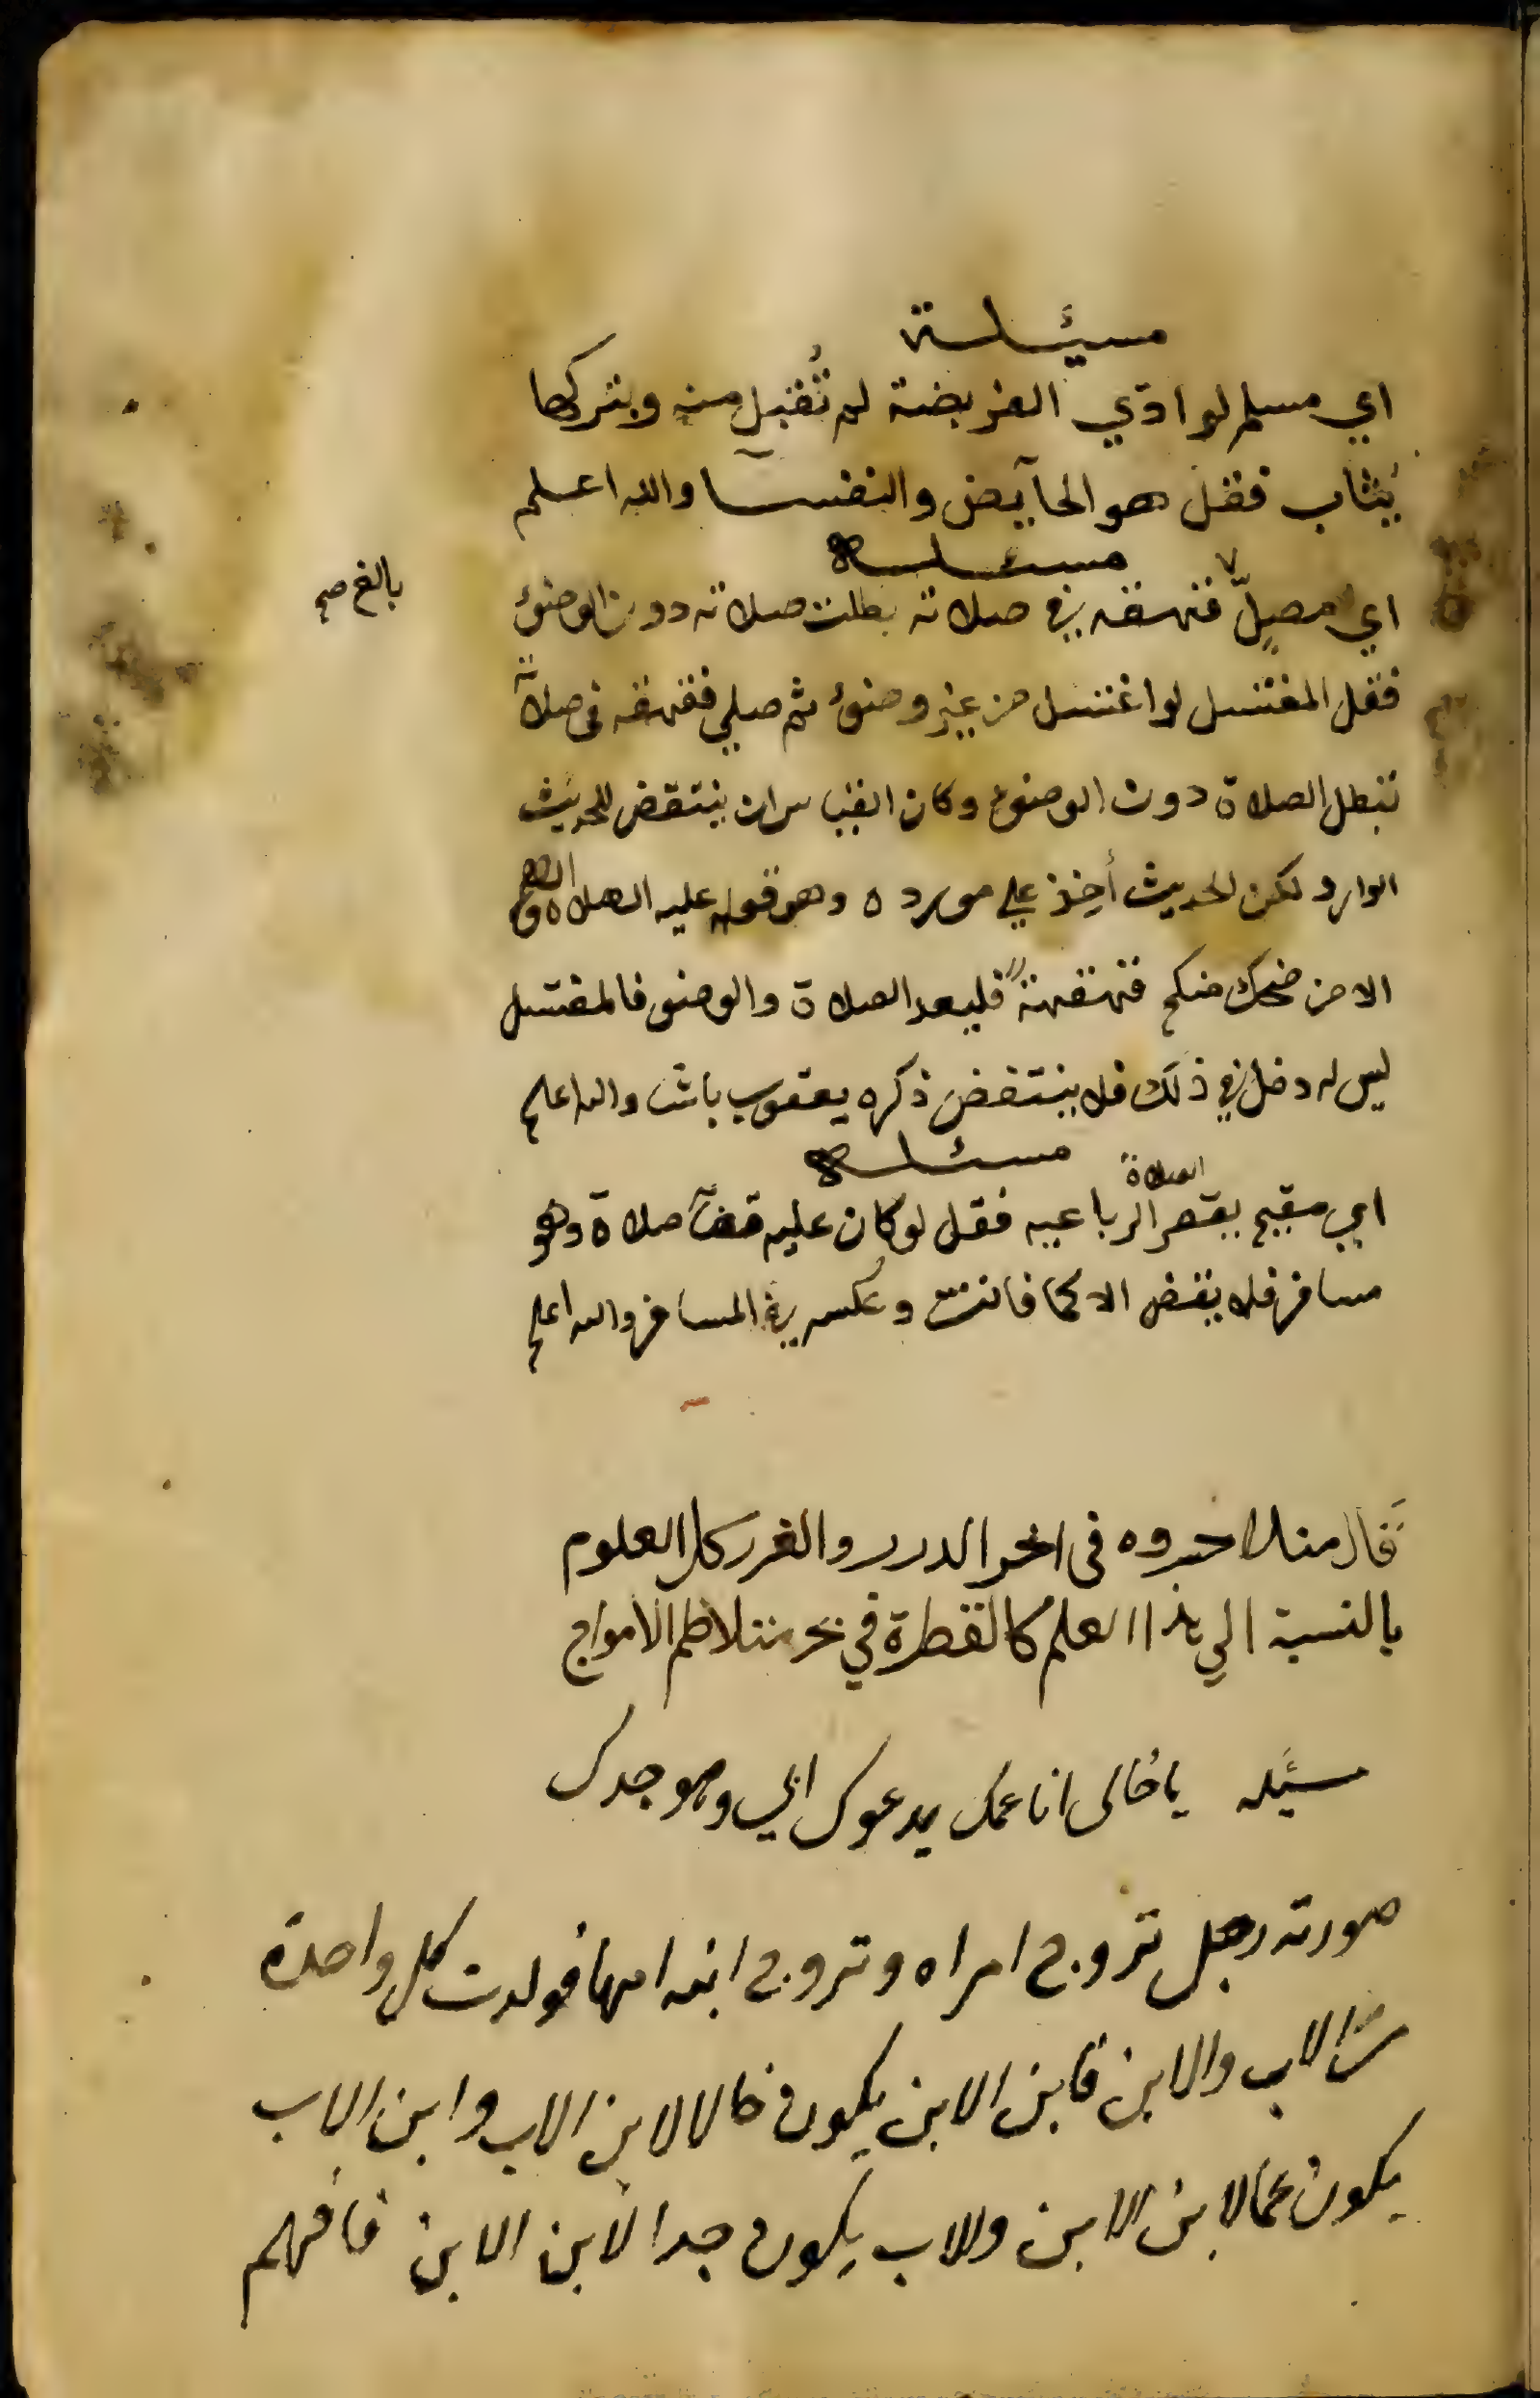 مسيئلة
اي مسلم لو ادّي الفريضة لم تُقبل منه وبتركها
يُثاب فقل هو الحآيض والنفسا والله اعلم
مسئله
اي مصلٍّ قهقه في صلاته بطلت صلاته دون الوضوء
بالغ صح
فقل المغتسل لو اغتسل من غير وضوء ثم صلي فقهقه في صلاته
تبطل الصلاة دون الوضوء وكان القياس ان ينتقض للحديث
الوارد لكن الحديث أخِذ علي مورده وهو قوله عليه الصلاة و
الا من ضحك منكم قهقهةً فليعد الصلاة والوضو فالمغتسل
ليس له دخل في ذلك فلا ينتقض ذكره يعقوب باشا والله اعلم
مسئله
اي مقيم يقصر الصلاة الرباعيه فقل لو كان عليه قضآ صلاة وهو
مسافر فلا يقض الا كما فاتت وعكسه في المسافر والله اعلم
قال منلا خسروه في اخر الدرر والغرر كل العلوم
بالنسبة الي هذا العلم كالقطرة في بحر متلاطم الامواج
مسئله يا خالى انا عمك يدعوك ابي وهو جدك
صورته رجل تزوج امراه وتزوج ابنه امها فولدت كل واحدة
من الاب والابن فابن الابن يكون خالا لابن الاب وابن الاب
يكون عما لابن الابن والاب يكون جدا لابن الابن فافهم